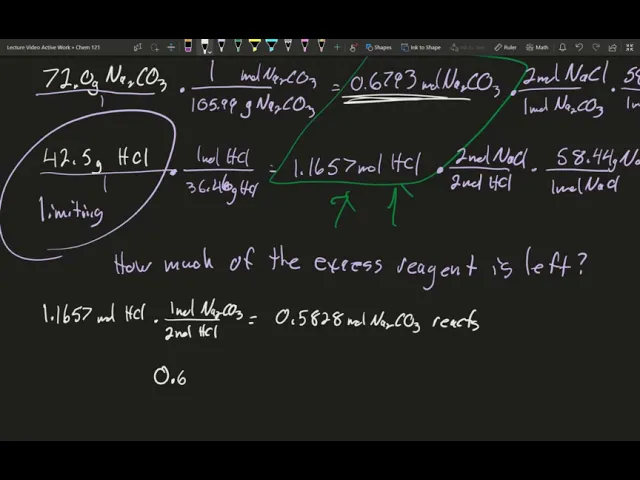 Lecture Video Active Work • Chem 121
Shapes Ink to Shape Ink to Text Ruler Math
72.0g Na₂CO₃ / 1 · 1 mol Na₂CO₃ / 105.99 g Na₂CO₃ = 0.6793 mol Na₂CO₃ · 2 mol NaCl / 1 mol Na₂CO₃ · 58
42.5g HCl / 1 · 1 mol HCl / 36.46g HCl = 1.1657 mol HCl · 2 mol NaCl / 2 mol HCl · 58.44g Na / 1 mol NaCl
limiting
How much of the excess reagent is left?
1.1657 mol HCl · 1 mol Na₂CO₃ / 2 mol HCl = 0.5828 mol Na₂CO₃ reacts
0.6